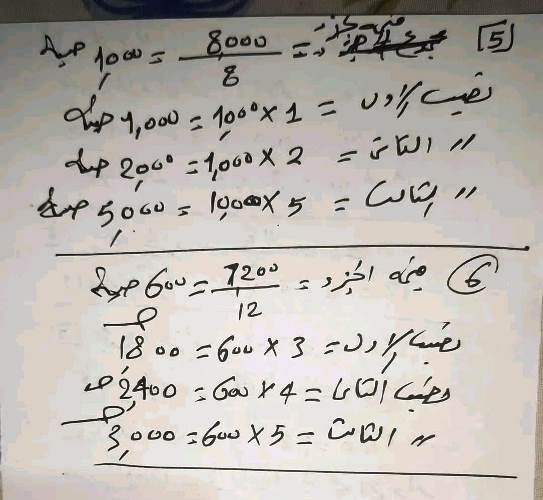 [5] قيمة الجزء = 8000 / 8 = 1,000 جنيه
نصيب الأول = 1 × 1,000 = 1,000 جنيه
" الثاني = 2 × 1,000 = 2,000 جنيه
" الثالث = 5 × 1,000 = 5,000 جنيه
6 قيمة الجزء = 7200 / 12 = 600 جنيه
نصيب الأول = 3 × 600 = 1,800 جـ
نصيب الثاني = 4 × 600 = 2,400 جـ
" الثالث = 5 × 600 = 3,000 جـ